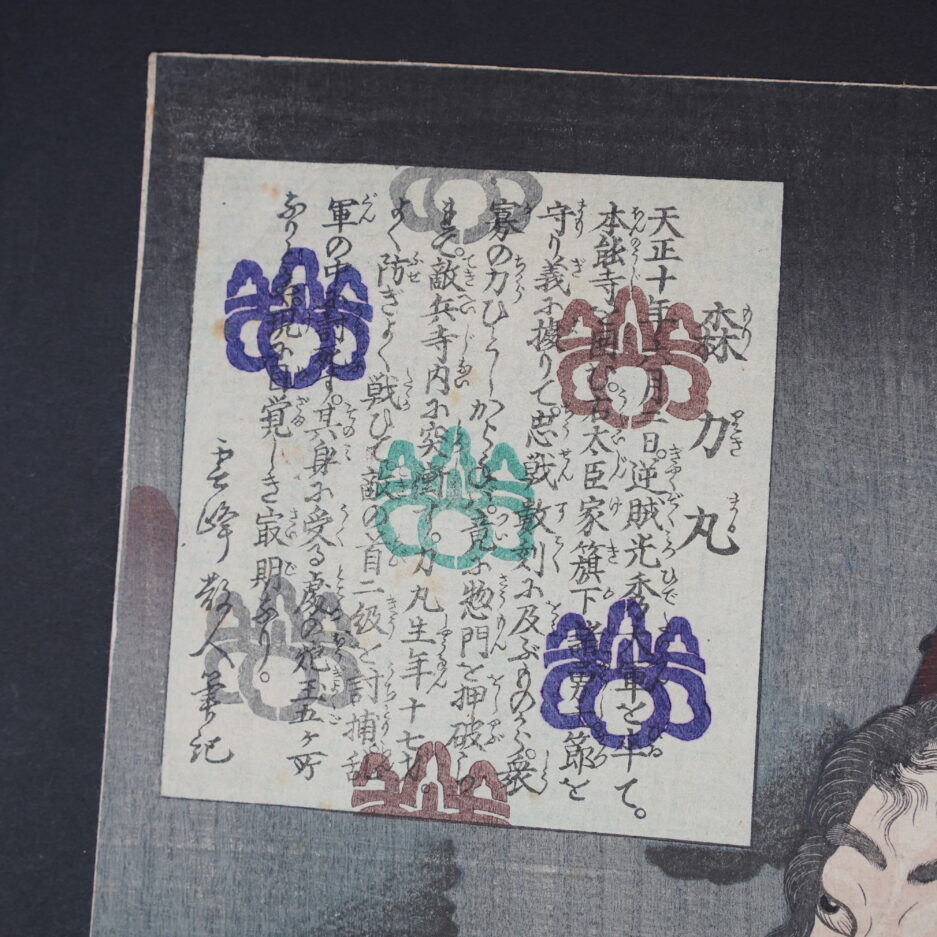 森力丸
天正十年六月二日。逆賊光秀大軍を牛て。
本能寺を囲む右太臣家籏下諸勇節を
守り義に據りて。忠戦数刻に及ぶものから。衆
寡の力ひとしからねば。竟に惣門を押破し
まで。敵兵寺内に突い。力丸生年十七才
よく防ぎよく戦ひて敵の首二級を討捕乱
軍の中に討死す。其身に受る處の疵五ヶ所
なりしは。児に目覚しき最期なり。
雲峰散人筆記